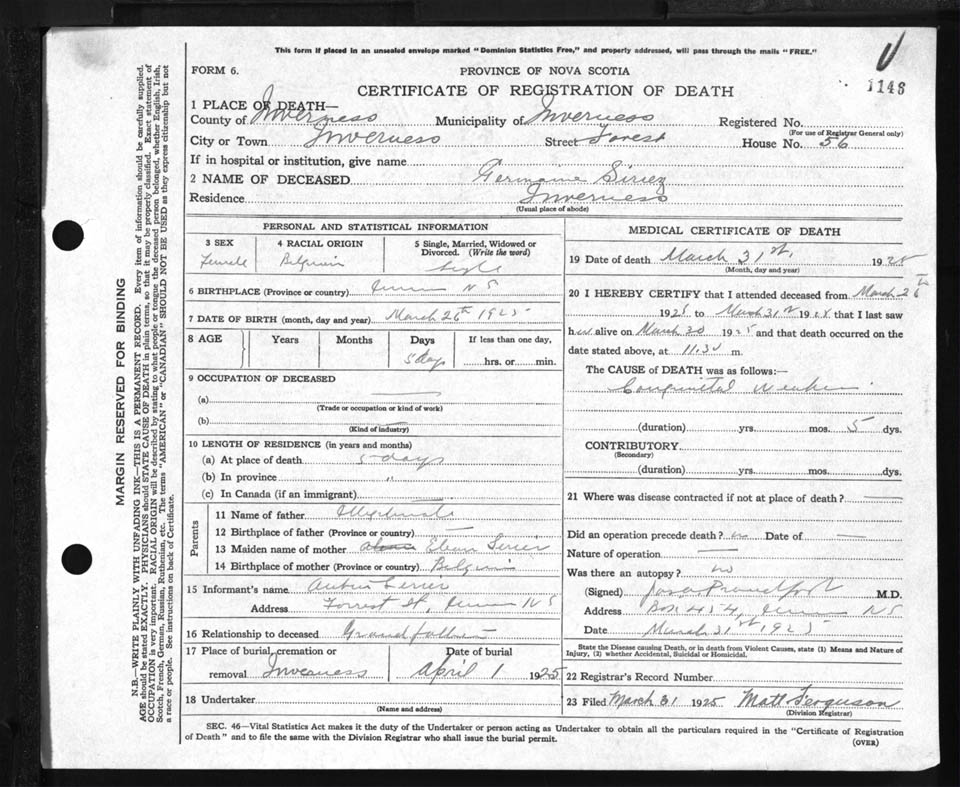 This form if placed in an unsealed envelope marked "Dominion Statistics Free," and properly addressed, will pass through the mails "FREE."
1148
FORM 6.
PROVINCE OF NOVA SCOTIA
CERTIFICATE OF REGISTRATION OF DEATH
1 PLACE OF DEATH—
County of Inverness Municipality of Inverness Registered No.
(For use of Registrar General only)
City or Town Inverness Street Forest House No. 56
If in hospital or institution, give name
2 NAME OF DECEASED Germaine Siriez
Residence Inverness
(Usual place of abode)
PERSONAL AND STATISTICAL INFORMATION
3 SEX 4 RACIAL ORIGIN 5 Single, Married, Widowed or Divorced. (Write the word)
Female Belgium Single
6 BIRTHPLACE (Province or country) NS
7 DATE OF BIRTH (month, day and year) March 26th 1925
8 AGE Years Months Days If less than one day,
5 days hrs. or min.
9 OCCUPATION OF DECEASED
(a) —
(Trade or occupation or kind of work)
(b)
(Kind of industry)
10 LENGTH OF RESIDENCE (in years and months)
(a) At place of death 5 days
(b) In province "
(c) In Canada (if an immigrant)
Parents
11 Name of father
12 Birthplace of father (Province or country) —
13 Maiden name of mother
14 Birthplace of mother (Province or country) Belgium
15 Informant's name
Address Forrest St, NS
16 Relationship to deceased Grandfather
17 Place of burial, cremation or removal Inverness Date of burial April 1 1925
18 Undertaker
(Name and address)
MEDICAL CERTIFICATE OF DEATH
19 Date of death March 31st, 1925
(Month, day and year)
20 I HEREBY CERTIFY that I attended deceased from March 26th
1925 to March 31st 1925 that I last saw
her alive on March 30 1925 and that death occurred on the
date stated above, at 11.30 m.
The CAUSE of DEATH was as follows:—
Congenital Weakness
(duration) yrs. mos. 5 dys.
CONTRIBUTORY
(Secondary)
(duration) yrs. mos. dys.
21 Where was disease contracted if not at place of death? —
Did an operation precede death? no Date of —
Nature of operation —
Was there an autopsy? no
(Signed) M.D.
Address Box 454, NS
Date March 31st 1925
State the Disease causing Death, or in death from Violent Causes, state (1) Means and Nature of Injury, (2) whether Accidental, Suicidal or Homicidal.
22 Registrar's Record Number
23 Filed March 31 1925 Matt Ferguson
(Division Registrar)
SEC. 46—Vital Statistics Act makes it the duty of the Undertaker or person acting as Undertaker to obtain all the particulars required in the "Certificate of Registration
of Death" and to file the same with the Division Registrar who shall issue the burial permit.
(OVER)
MARGIN RESERVED FOR BINDING
N.B.—WRITE PLAINLY WITH UNFADING INK—THIS IS A PERMANENT RECORD. Every item of information should be carefully supplied.
AGE should be stated EXACTLY. PHYSICIANS should STATE CAUSE OF DEATH in plain terms, so that it may be properly classified. Exact statement of
OCCUPATION is very important. RACIAL ORIGIN will be described by stating to what people or tongue the deceased person belonged, whether English, Irish,
Scotch, French, German, Russian, Ruthenian, etc. The terms "AMERICAN" or "CANADIAN" SHOULD NOT BE USED as they express citizenship but not
a race or people. See instructions on back of Certificate.